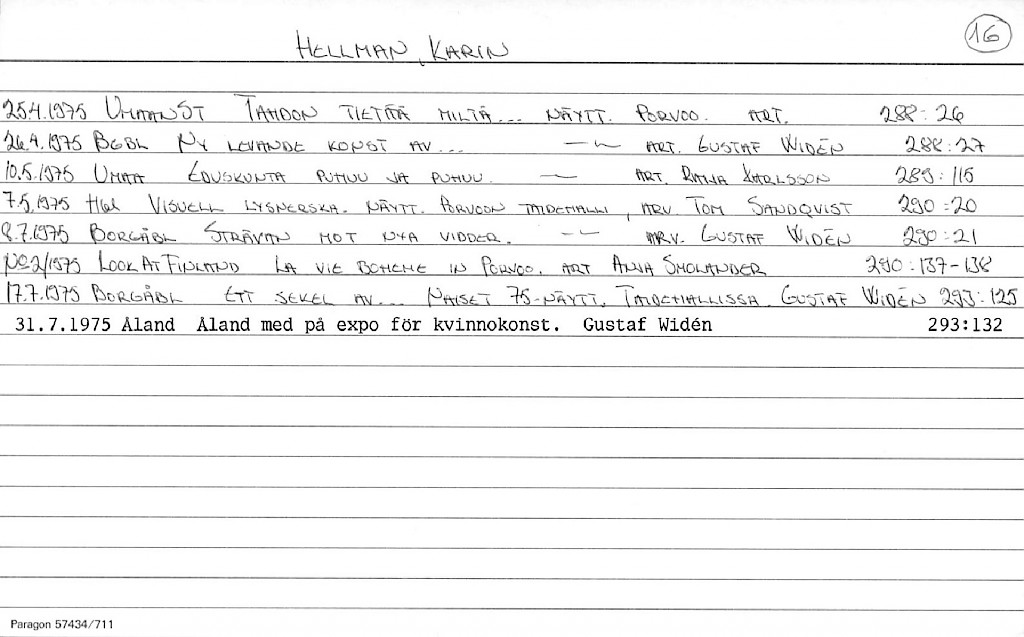 16
HELLMAN, KARIN
25.4.1975 UMAANST TAHDON TIETÄÄ MILTÄ... NÄYTT. PORVOO. ART. 288:26
26.4.1975 BGBL NY LEVANDE KONST AV... —〃— ART. GUSTAF WIDÉN 288:27
10.5.1975 UMAA EDUSKUNTA PUHUU JA PUHUU. —〃— ART. RAIJA KARLSSON 289:115
7.5.1975 Hbl VISUELL LYSNERSKA. NÄYTT. PORVOON TAIDEHALLI, ARV. TOM SANDQVIST 290:20
8.7.1975 BORGÅBL STRÄVAN MOT NYA VIDDER. —〃— ARV. GUSTAF WIDÉN 290:21
No 2/1975 LOOK AT FINLAND LA VIE BOHEME IN PORVOO. ART ANJA SMOLANDER 290:137-138
17.7.1975 BORGÅBL ETT SEKEL AV... NAISET 75-NÄYTT. TAIDEHALLISSA. GUSTAF WIDÉN 293:125
31.7.1975 Åland Åland med på expo för kvinnokonst. Gustaf Widén 293:132
Paragon 57434/711